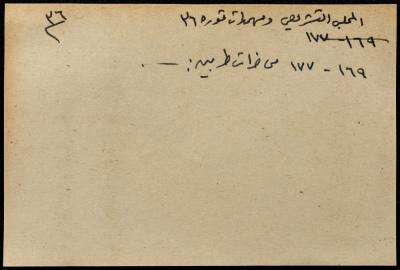 ٣٦
المجلس التشريعي ومهمدات ثورة ٣٦
١٦٩ - ١٧٧
١٦٩ - ١٧٧ من مذكرات طربين : — .